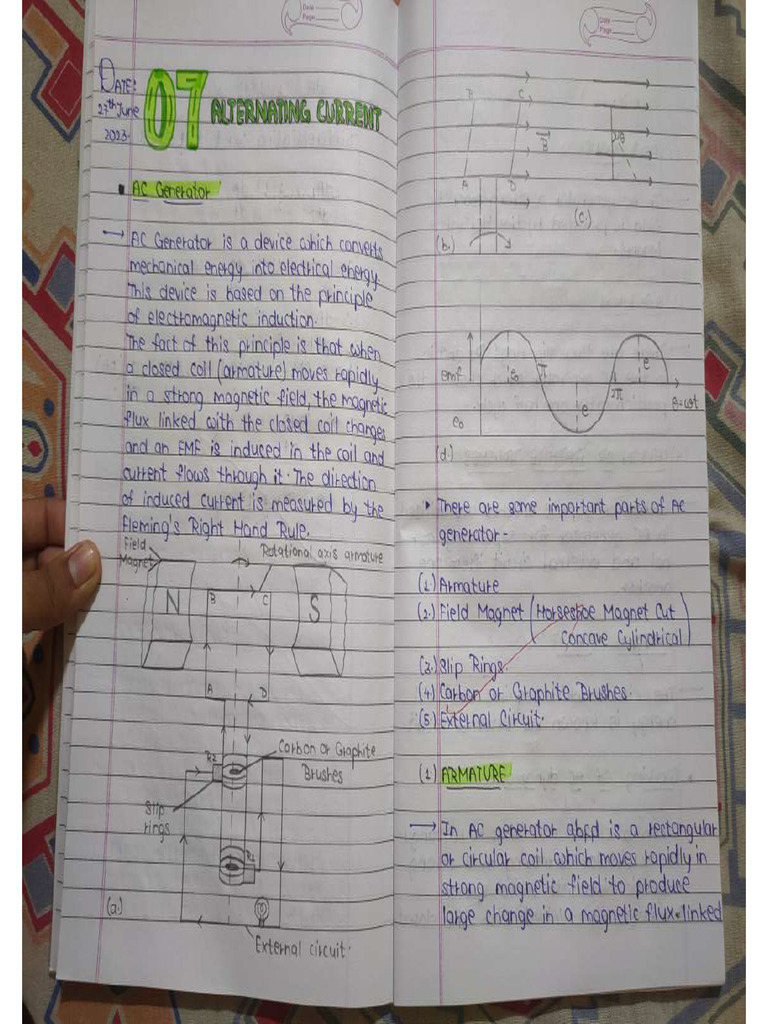 Date
Page
DATE:
27th June
2023.
07 ALTERNATING CURRENT
AC Generator
→ AC Generator is a device which converts
mechanical energy into electrical energy.
This device is based on the principle
of electromagnetic induction.
The fact of this principle is that when
a closed coil (armature) moves rapidly
in a strong magnetic field, the magnetic
flux linked with the closed coil changes
and an EMF is induced in the coil and
current flows through it. The direction
of induced current is measured by the
Fleming's Right Hand Rule.
Field
Magnet
Rotational axis armature
N
B
C
S
A
D
R2
Carbon or Graphite
Brushes
Slip
rings
R1
(a.)
External circuit.
Date
Page
B
C
B
θ
A
D
(b.)
(C.)
emf
π
e
e
2π
θ=ωt
e0
(d.)
• There are some important parts of AC
generator -
(1.) Armature
(2.) Field Magnet (Horseshoe Magnet Cut
Concave Cylindrical)
(3.) Slip Rings.
(4.) Carbon or Graphite Brushes.
(5.) External Circuit.
(1.) ARMATURE
→ In AC generator is a rectangular
or circular coil which moves rapidly in
strong magnetic field to produce
large change in a magnetic flux linked